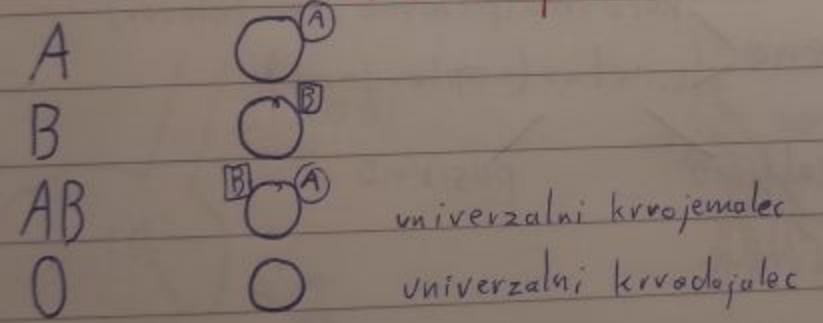 A A
B B
AB B A univerzalni krvojemalec
0 univerzalni krvodajalec